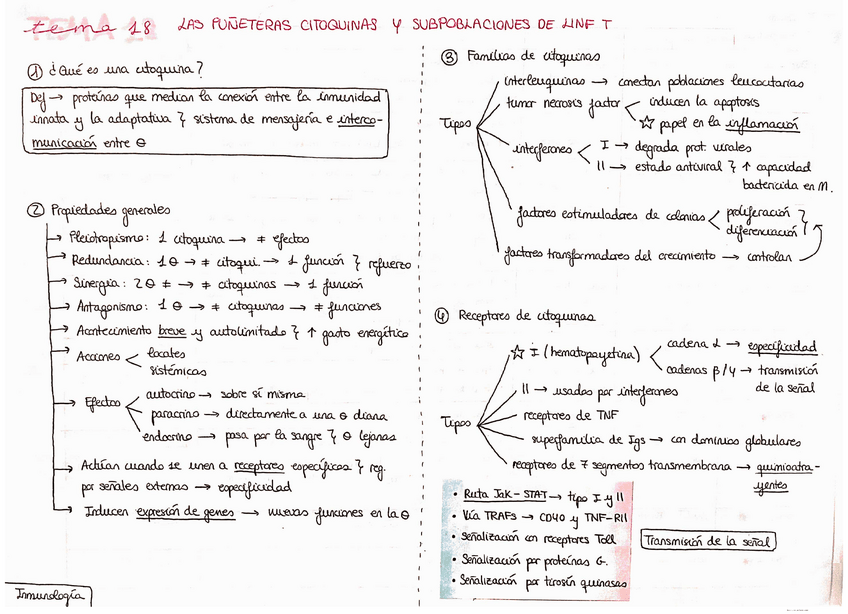 tema 18 LAS PUÑETERAS CITOQUINAS Y SUBPOBLACIONES DE LINF T
① ¿Qué es una citoquina?
Def → proteínas que median la conexión entre la inmunidad
innata y la adaptativa } sistema de mensajería e interco-
municación entre ⊖
② Propiedades generales
→ Pleiotropismo: 1 citoquina → ≠ efectos
→ Redundancia: 1 ⊖ → ≠ citoqui. → 1 función } refuerzo
→ Sinergia: 2 ⊖ ≠ → ≠ citoquinas → 1 función
→ Antagonismo: 1 ⊖ → ≠ citoquinas → ≠ funciones
→ Acontecimiento breve y autolimitado } ↑ gasto energético
→ Acciones < locales
sistémicas
→ Efectos < autocrino → sobre sí misma
paracrino → directamente a una ⊖ diana
endocrino → pasa por la sangre } ⊖ lejanas
→ Actúan cuando se unen a receptores específicos } reg.
por señales externas → especificidad
→ Inducen expresión de genes → nuevas funciones en la ⊖
Inmunología
③ Familias de citoquinas
Tipos
interleuquinas → conectan poblaciones leucocitarias
tumor necrosis factor < inducen la apoptosis
☆ papel en la inflamación
interferones < I → degrada prot. virales
II → estado antiviral } ↑ capacidad
bactericida en M.
factores estimuladores de colonias < proliferación }
diferenciación }
factores transformadores del crecimiento → controlan
④ Receptores de citoquinas
Tipos
☆ I (hematopoyetina) < cadena α → especificidad
cadenas β/γ → transmisión
de la señal
II → usados por interferones
receptores de TNF
superfamilia de Igs → con dominios globulares
receptores de 7 segmentos transmembrana → quimioatra-
yentes
• Ruta Jak-STAT → tipo I y II
• Vía TRAFs → CD40 y TNF-RII
• Señalización con receptores Toll
• Señalización por proteínas G.
• Señalización por tirosín quinasas
Transmisión de la señal